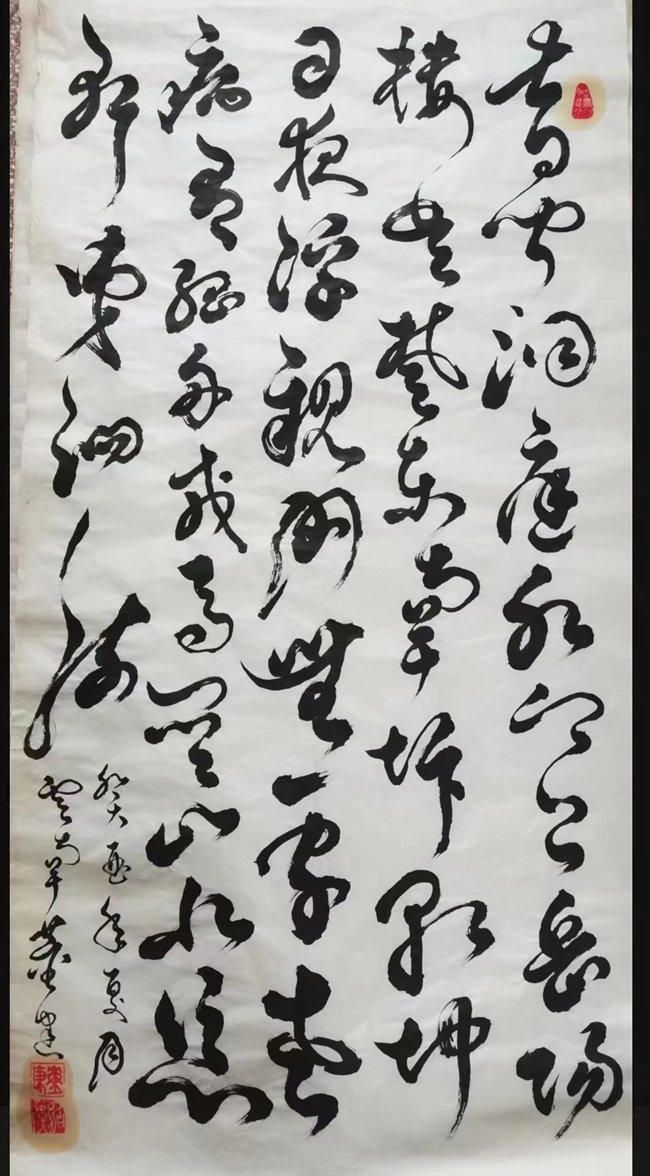 昔聞洞庭水今上岳陽
樓吳楚東南坼乾坤
日夜浮親朋無一字老
病有孤舟戎馬關山北憑
軒涕泗流
癸酉年夏月
雲南董